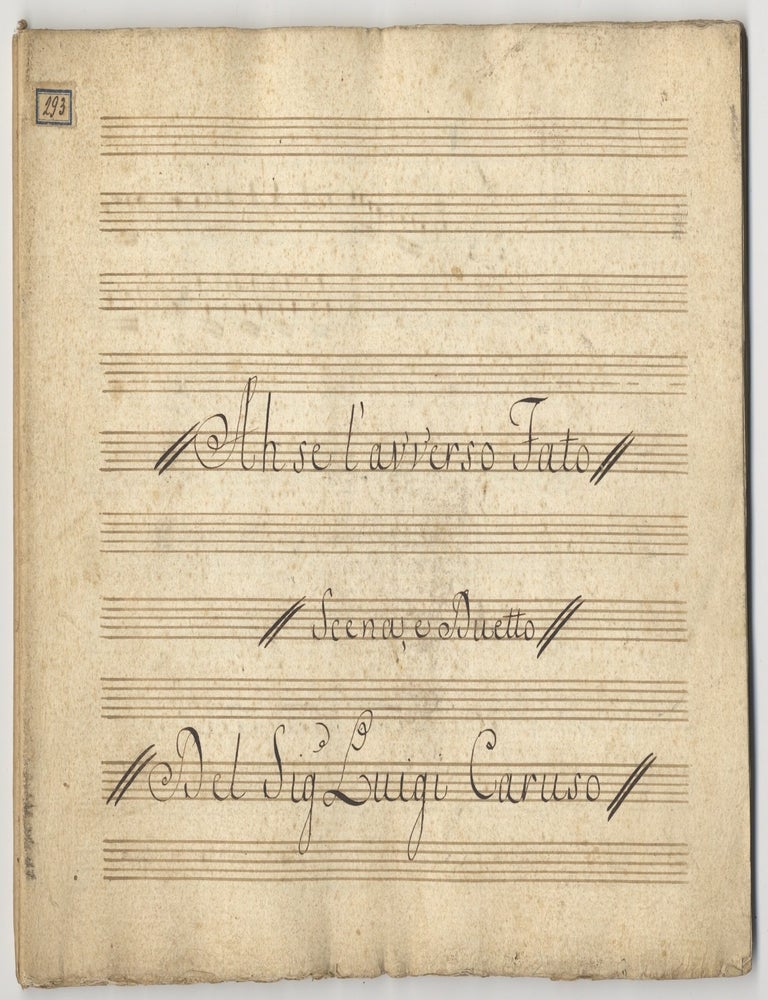 293
Ah se l'avverso Fato
Scena, e Duetto
Del Sigr Luigi Caruso